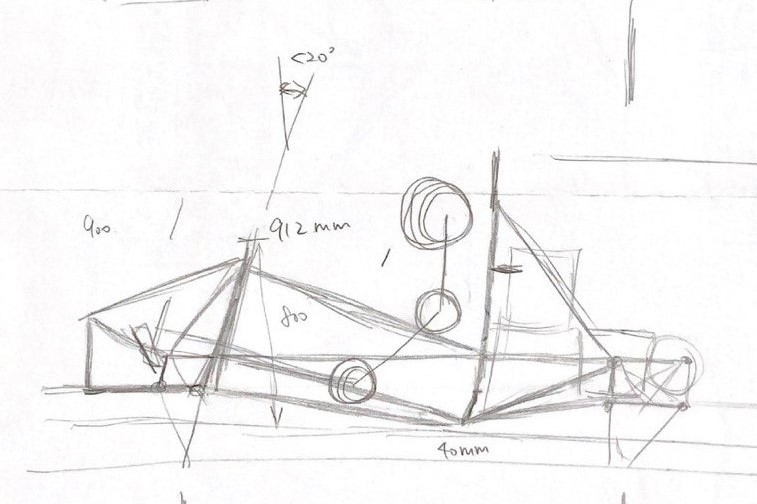 <20°
900
912 mm
800
40mm